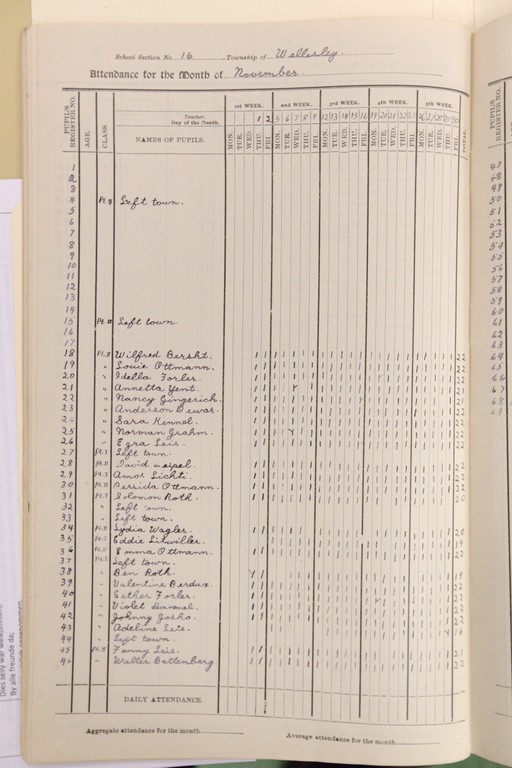 School Section No. 16 Township of Wellesley.
Attendance for the Month of November.
PUPIL'S REGISTER NO. AGE. CLASS. Teacher. Day of the Month. NAMES OF PUPILS.
1ST WEEK. 2ND WEEK. 3RD WEEK. 4TH WEEK. 5TH WEEK.
1 2 5 6 7 8 9 12 13 14 15 16 19 20 21 22 23 26 27 28 29 30
MON. TUE. WED. THU. FRI. MON. TUE. WED. THU. FRI. MON. TUE. WED. THU. FRI. MON. TUE. WED. THU. FRI. MON. TUE. WED. THU. FRI. TOTAL.
1
2
3
4 Pt. II Left town.
5
6
7
8
9
10
11
12
13
14
15 Pt. II Left town.
16
17
18 Pt. II Wilfred 22
19 " Louie Ottmann. 22
20 " Idella Forler. 22
21 " Annetta Yent. 21
22 " Nancy Gingerich. 22
23 " Anderson Dewar. 22
" Sara Kennel. 22
25 " Norman Grahm.
26 " Ezra Leis. 22
27 Pt. I Left town.
28 Pt. II David 22
29 Pt. I Amos Lichti. 22
30 Pt. II Persida Ottmann. 22
31 Pt. I Solomon Roth. 20
32 " Left town.
33 " Left town.
34 Pt. II Lydia Wagler. 20
35 Eddie Litwiller.
36 Emma Ottmann. 22
37 Left town.
38 " Ben Roth. 19
39 " Valentine Berdux. 22
40 " Esther Forler. 22
41 " Violet 22
42 " Johnny 22
43 " Adeline Leis.
44 " Left town.
45 Fanny Leis. 21
" Walter Battenberg 22
DAILY ATTENDANCE.
Aggregate attendance for the month
Average attendance for the month
PUPIL'S REGISTER NO.
47
48
49
50
51
52
53
54
55
56
57
58
59
60
61
62
63
64
65
66
67
68
69
By alle freunde da;